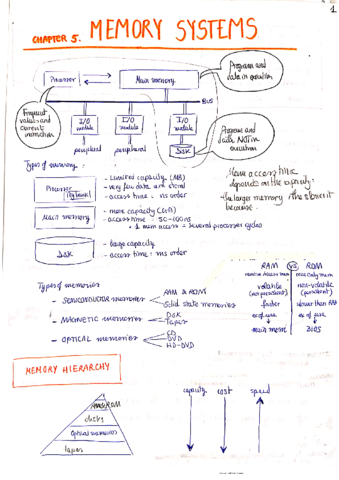 1
CHAPTER 5. MEMORY SYSTEMS
Processor
Main memory
Program and
data in execution
BUS
Frequent
values and
current
instruction
I/O
module
I/O
module
I/O
module
peripheral
peripheral
Disk
Program and
data NOT in
execution
Types of memory:
Processor
- Limited capacity (MB)
- very few data are stored
- access time: ns order
Main memory
- more capacity (GB)
- access time: 50-100ns
1 mem access = several processor cycles
Disk
- large capacity
- access time: ms order
More access time
depends on the capacity:
the larger memory the element
because
Types of memories
- SEMICONDUCTOR memories
RAM & ROM
Solid state memories
- MAGNETIC memories
Disk
Tapes
- OPTICAL memories
CD
DVD
HD-DVD
RAM VS ROM
random access mem
read only mem
volatile
(non persistent)
non-volatile
(persistent)
faster
slower than RAM
ex of use
ex of use
main mem
BIOS
MEMORY HIERARCHY
disks
Optical memories
tapes
capacity
cost
speed